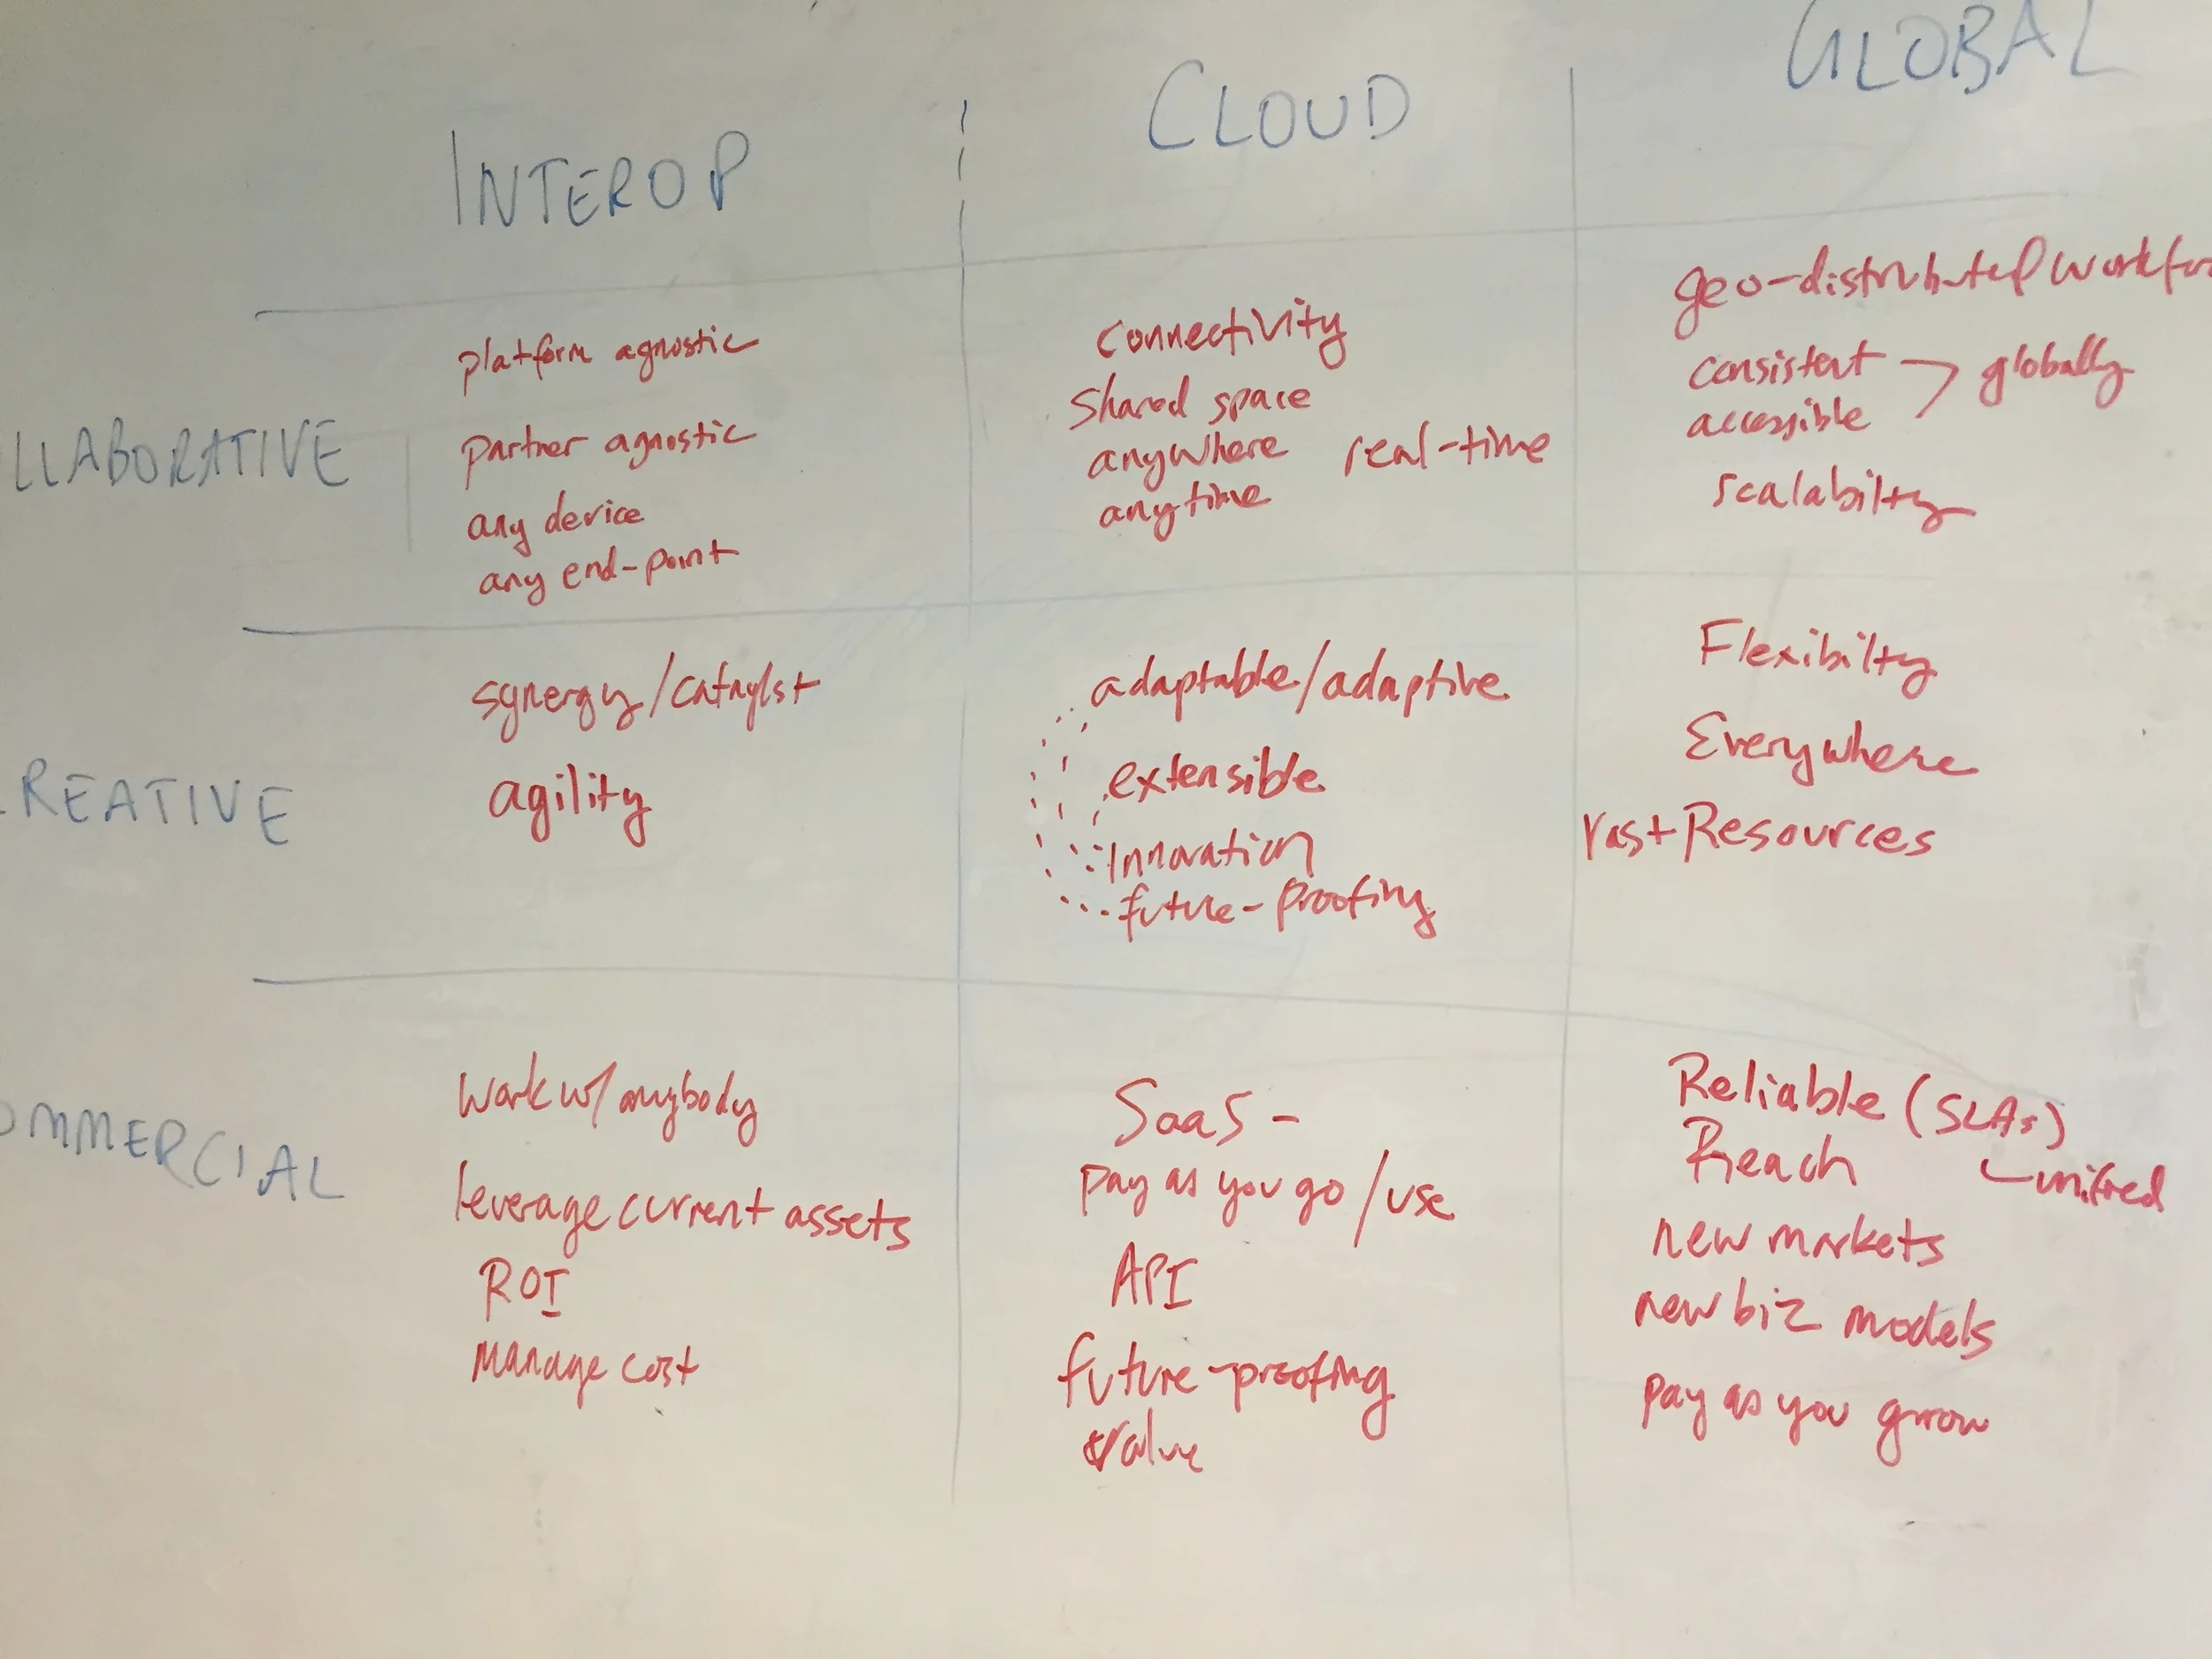 INTEROP
CLOUD
GLOBAL
LLABORATIVE
platform agnostic
partner agnostic
any device
any end-point
Connectivity
Shared space
anywhere real-time
anytime
geo-distributed workfor
consistent > globally
accessible
scalabilty
REATIVE
synergy/catnylst
agility
adaptable/adaptive
extensible
Innovation
future-proofing
Flexibilty
Everywhere
Vast Resources
OMMERCIAL
Work w/ anybody
leverage current assets
ROI
manage cost
SaaS -
pay as you go/use
API
future-proofing
value
Reliable (SLAs)
Reach - unified
new markets
new biz models
pay as you grow